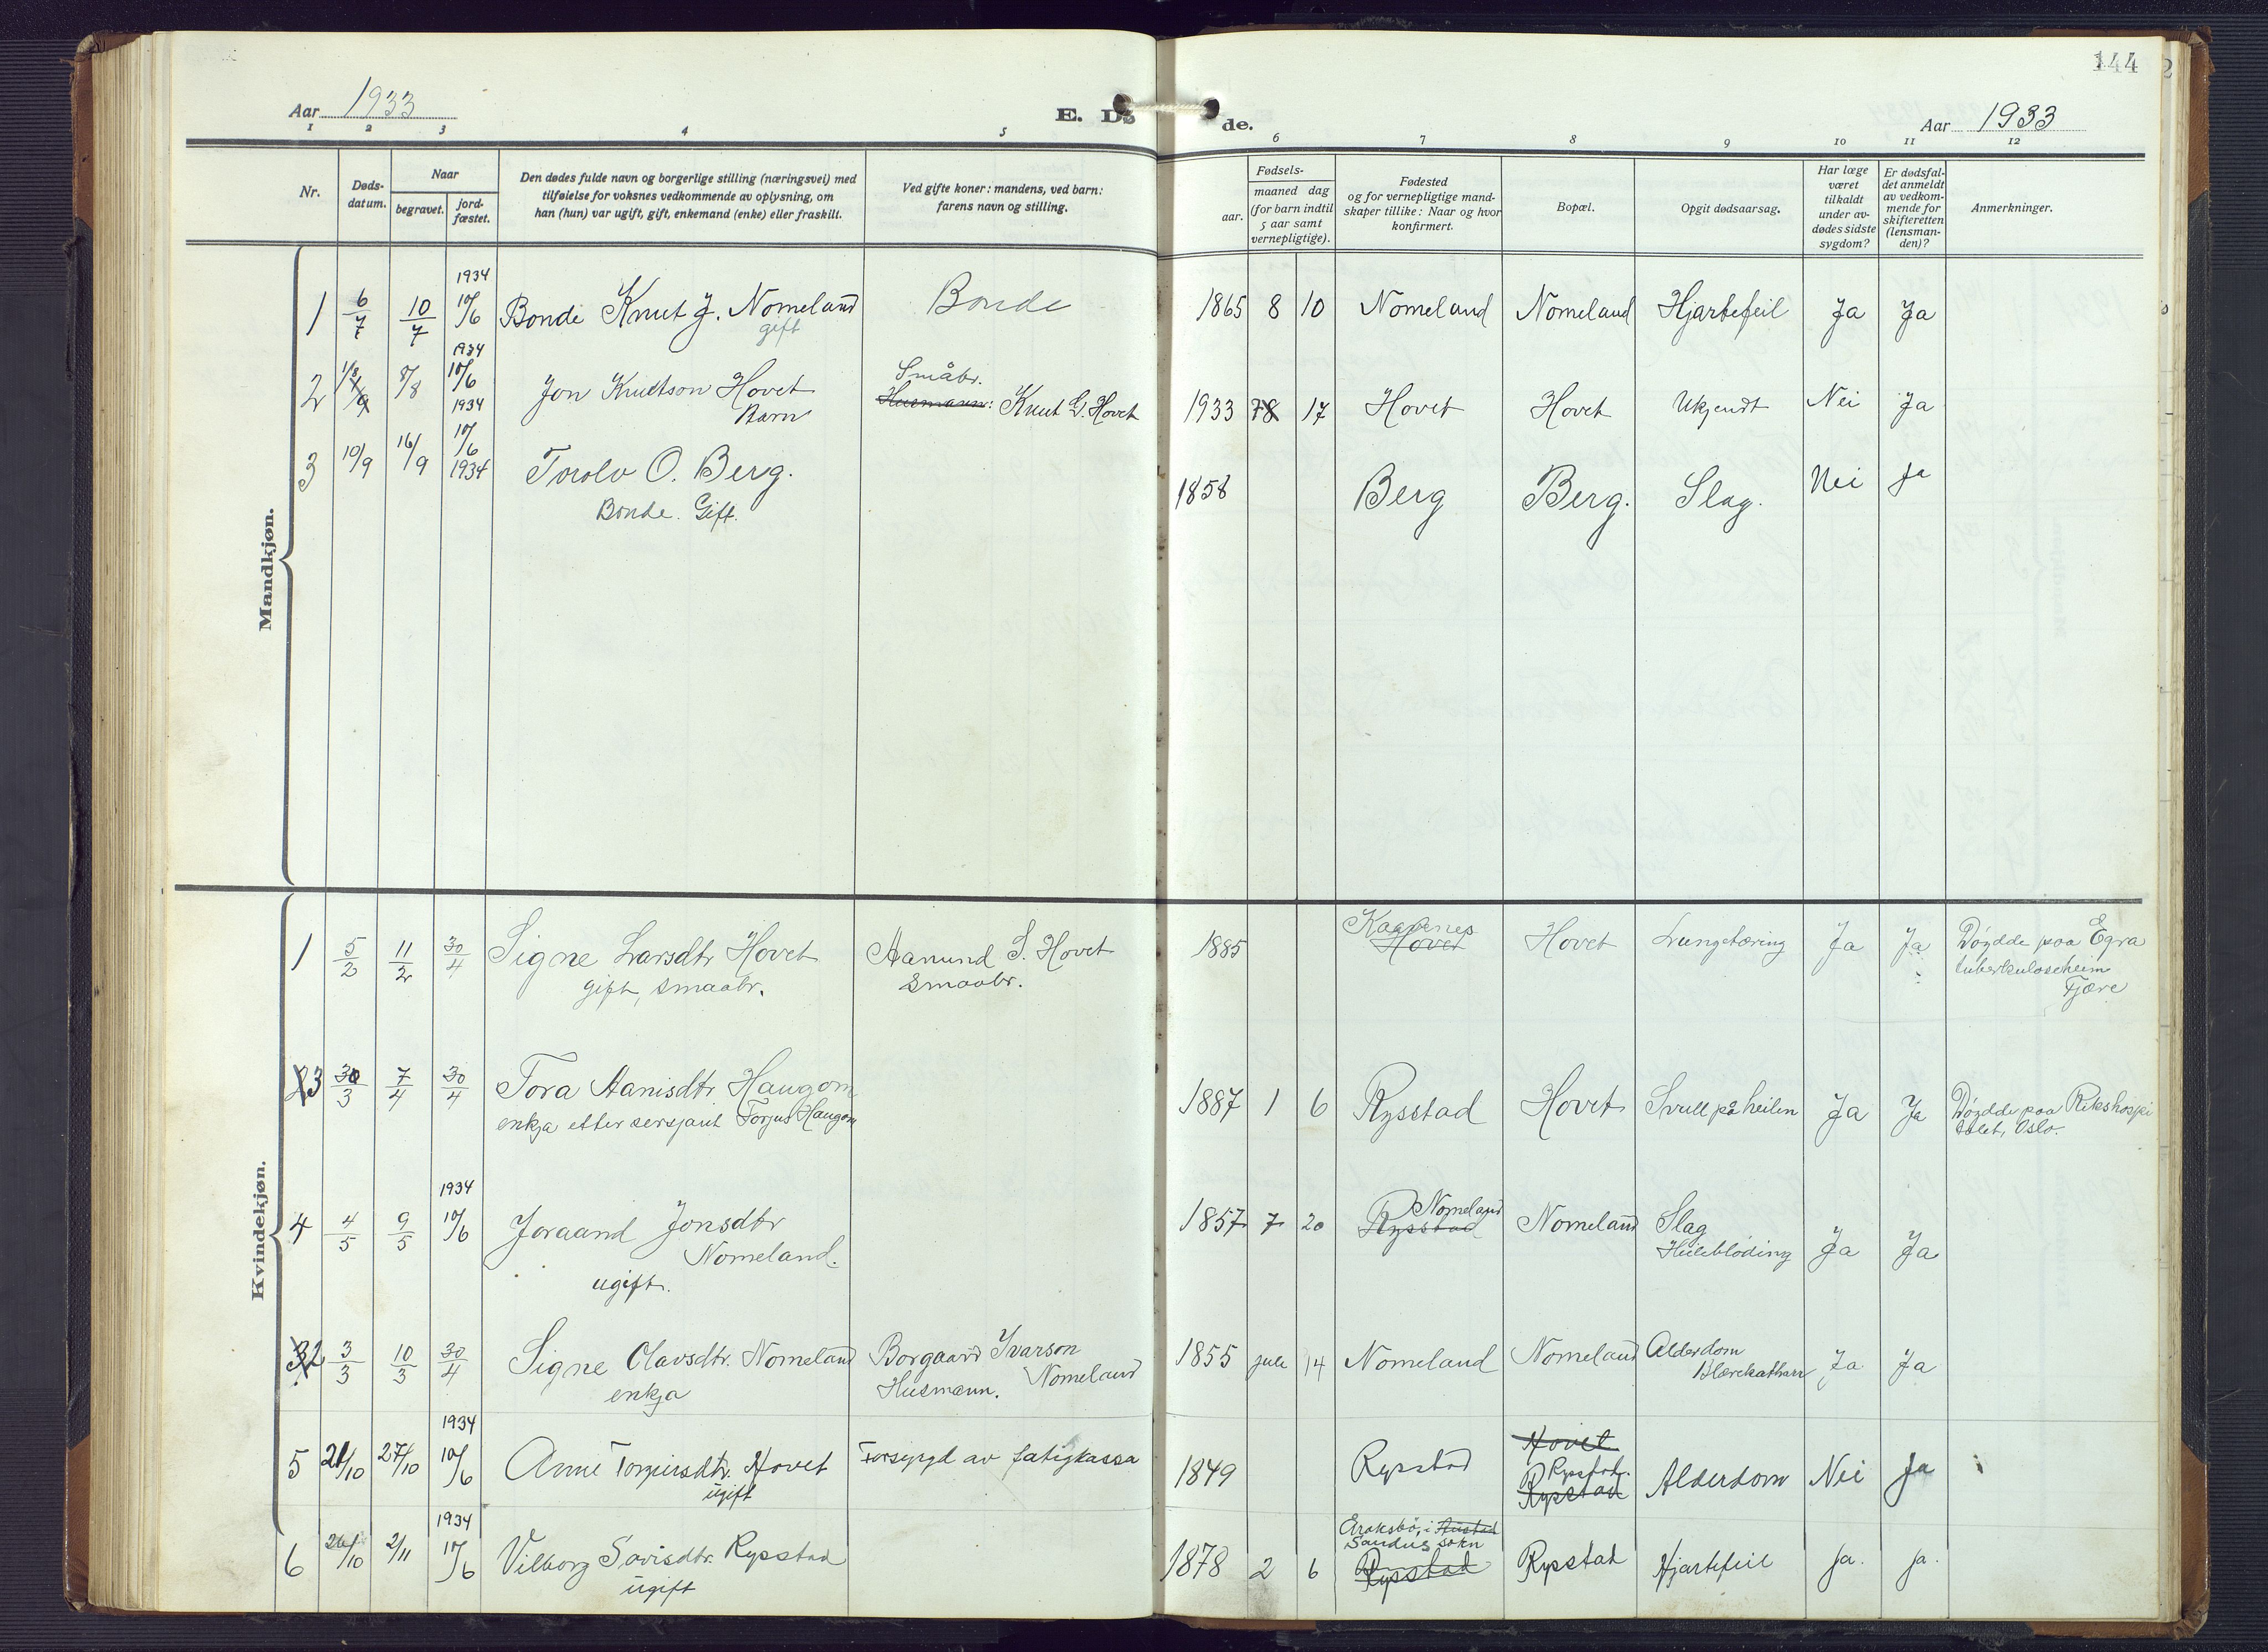 144
Aar 1933
E. Dø
de.
Aar 1933
1 2 3 4 5 6 7 8 9 10 11 12
Nr.
Døds-
datum.
Naar
begravet.
jord-
fæstet.
Den dødes fulde navn og borgerlige stilling (næringsvei) med
tilføielse for voksnes vedkommende av oplysning, om
han (hun) var ugift, gift, enkemand (enke) eller fraskilt.
Ved gifte koner: mandens, ved barn:
farens navn og stilling.
Fødsels-
aar.
maaned dag
(for barn indtil
5 aar samt
vernepligtige).
Fødested
og for vernepligtige mand-
skaper tillike: Naar og hvor
konfirmert.
Bopæl.
Opgit dødsaarsag.
Har læge
været
tilkaldt
under av-
dødes sidste
sygdom?
Er dødsfal-
det anmeldt
av vedkom-
mende for
skifteretten
(lensman-
den)?
Anmerkninger.
Mandkjøn.
1934
1 6/7 10/7 10/6 Bonde Knut J. Nomeland Bonde 1865 8 10 Nomeland Nomeland Hjartefeil Ja Ja
gift
1934
Småbr.
2 1/8 8/8 10/6 Jon Knutson Hovet Husmann: Knut G. Hovet 1933 17 Hovet Hovet Ukjendt Nei Ja
Barn
1934
3 10/9 16/9 10/6 Torolv O. Berg. 1858 Berg Berg. Slag. Nei Ja
1934
Bonde. Gift.
Kvindekjøn.
1 5/2 11/2 30/4 Signe Larsdtr Hovet Aanund S. Hovet 1885 Hovet Hovet Lungetæring Ja Ja Döydde paa Egra
gift, smaabr. Smaabr. tuberkuloseheim
Fjære
3 30/3 7/4 30/4 Tora Aanisdtr Haugom 1887 1 6 Rysstad Hovet Svull på heilen Ja Ja Döydde paa Rikshospi
enkja etter sersjant Torjus Haugom talet, Oslo.
1934
Nomeland
4 4/5 9/5 10/6 Joraand Jonsdtr 1857 7 20 Rysstad Nomeland Slag
Nomeland. Heileblöding Ja Ja
ugift.
2 3/3 10/3 30/4 Signe Olavsdtr. Nomeland Borgaard Ivarson 1855 juli 14 Nomeland Nomeland Alderdom Ja Ja
enkja Husmann. Nomeland Blærekatharr
1934
Hovet
5 21/10 27/10 10/6 Anne Torgiursdtr. Hovet Forsyrgd av fatigkassa 1849 Rysstad Rysstad. Alderdom Nei Ja
ugift Rysstad
1934
Sandnes sokn
6 26/10 2/11 10/6 Vilborg Savisdtr. Rysstad 1878 2 6 Rysstad Rysstad Hjartefeil Ja. Ja.
ugift